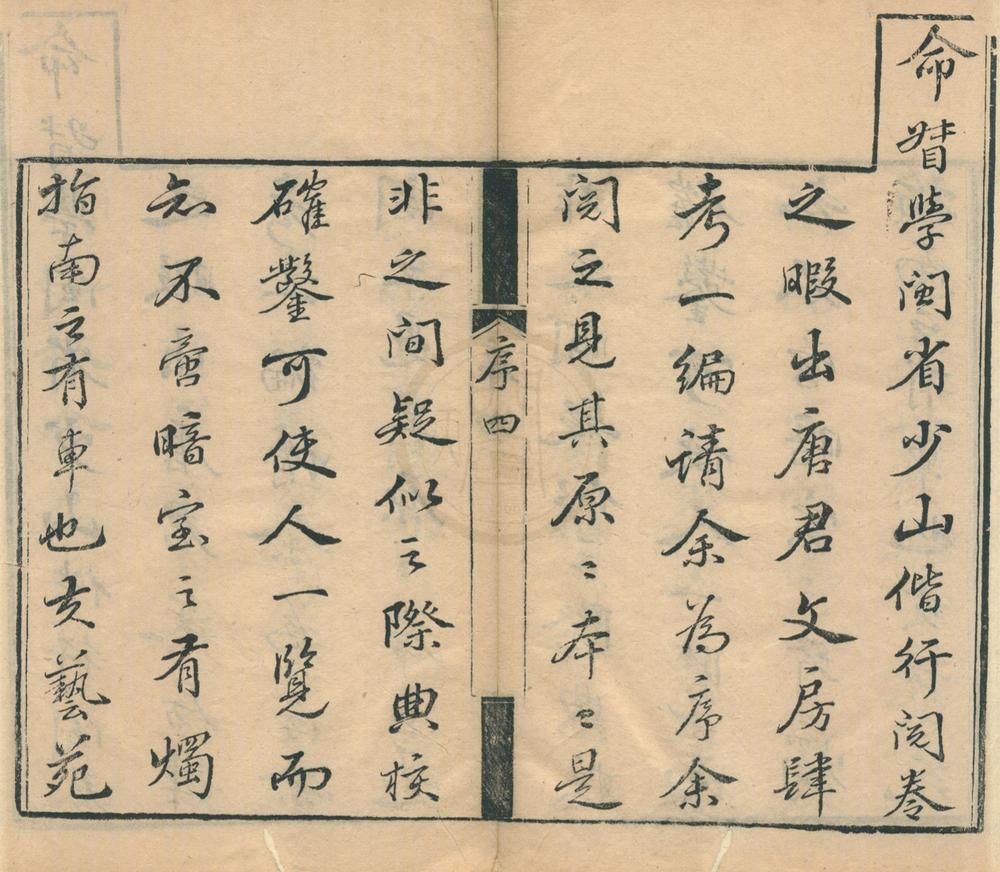 命督學閩省少山偕行閱卷
之暇出唐君文房肆
考一編請余為序余
閱之見其原〻本〻是
序四
非之間疑似之際典核
確鑿可使人一覽而
知不啻暗室之有燭
指南之有車也夫藝苑